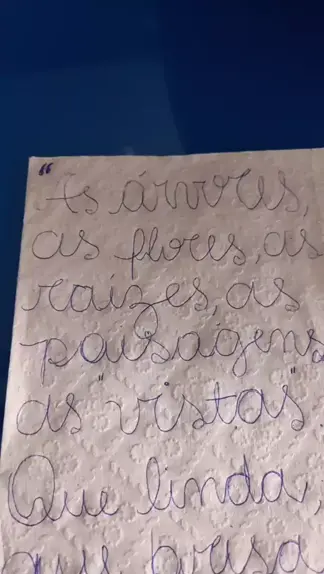 “As árvores,
as flores, as
raízes, as
paisagens
as "vistas".
Que linda,
que brisa